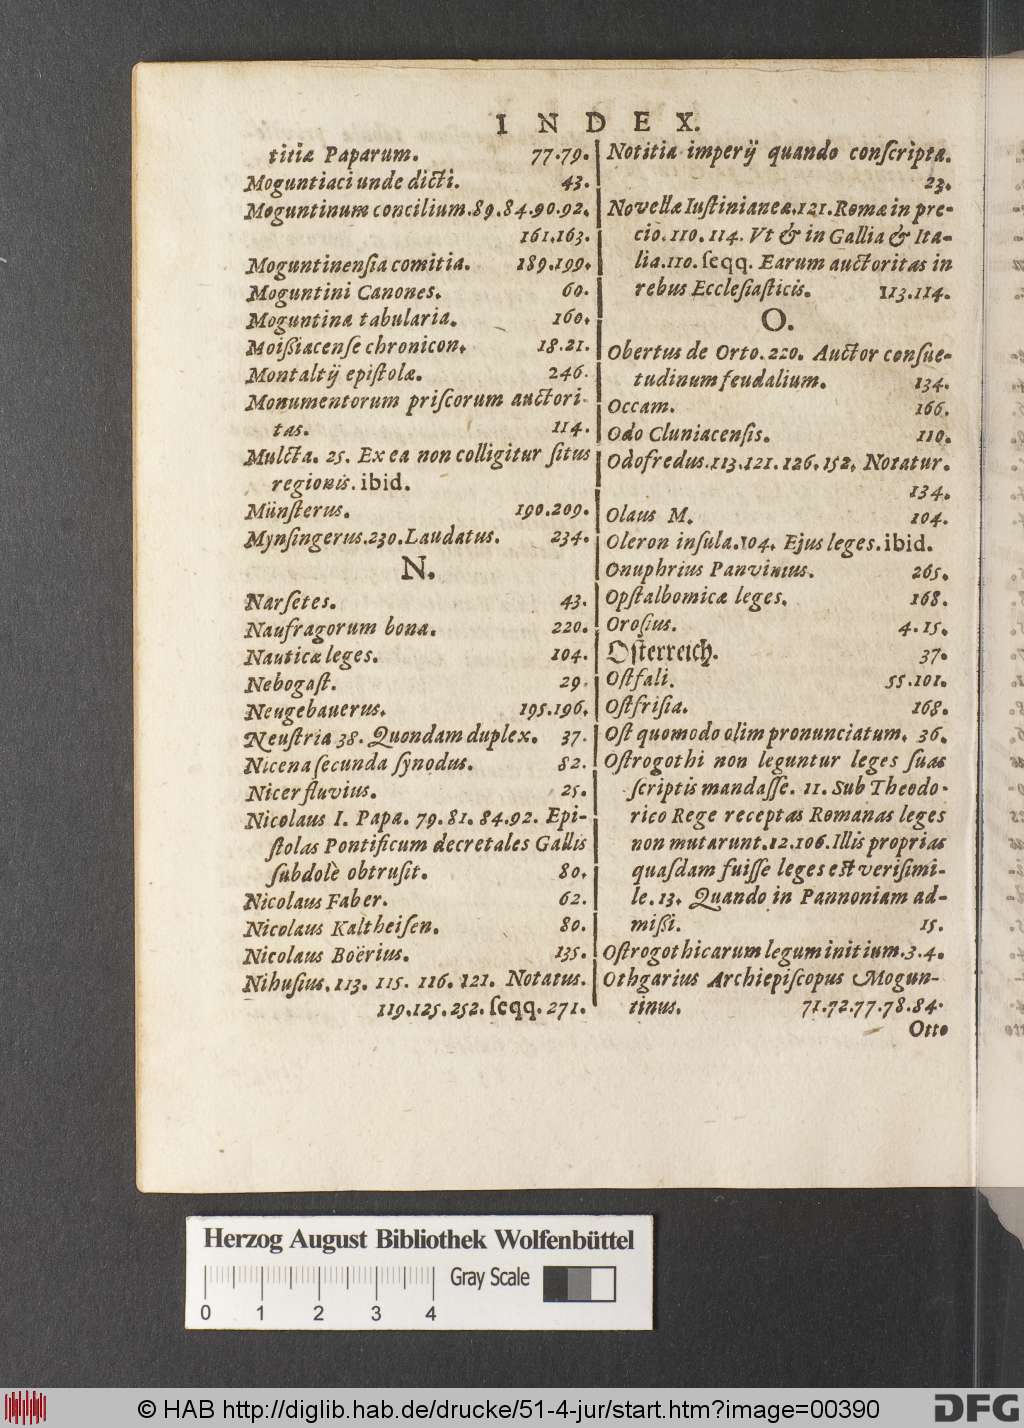 INDEX.
titiæ Paparum. 77.79.
Moguntiaci unde dicti. 43.
Moguntinum concilium. 89. 84. 90. 92.
161. 163.
Moguntinensia comitia. 189. 199.
Moguntini Canones. 60.
Moguntina tabularia. 160.
Moißiacense chronicon. 18. 21.
Montaltij epistolæ. 246.
Monumentorum priscorum auctori-
tas. 114.
Mulcta. 25. Ex ea non colligitur situs
regionis. ibid.
Münsterus. 190. 209.
Mynsingerus. 230. Laudatus. 234.
N.
Narsetes. 43.
Naufragorum bona. 220.
Nauticæ leges. 104.
Nebogast. 29.
Neugebauerus. 195. 196.
Neustria 38. Quondam duplex. 37.
Nicena secunda synodus. 82.
Nicer fluvius. 25.
Nicolaus I. Papa. 79. 81. 84. 92. Epi-
stolas Pontificum decretales Gallis
subdolè obtrusit. 80.
Nicolaus Faber. 62.
Nicolaus Kaltheisen. 80.
Nicolaus Boërius. 135.
Nihusius. 113. 115. 116. 121. Notatus.
119. 125. 252. seqq. 271.
Notitia imperij quando conscripta.
23.
Novellæ Iustinianeæ. 121. Romæ in pre-
cio. 110. 114. Vt & in Gallia & Ita-
lia. 110. seqq. Earum auctoritas in
rebus Ecclesiasticis. 113. 114.
O.
Obertus de Orto. 220. Auctor consue-
tudinum feudalium. 134.
Occam. 166.
Odo Cluniacensis. 110.
Odofredus. 113. 121. 126. 152. Notatur.
134.
Olaus M. 104.
Oleron insula. 104. Ejus leges. ibid.
Onuphrius Panvinius. 265.
Opstalbomicæ leges. 168.
Orosius. 4. 15.
Osterreich. 37.
Ostfali. 55. 101.
Ostfrisia. 168.
Ost quomodo olim pronunciatum. 36.
Ostrogothi non leguntur leges suas
scriptis mandasse. 11. Sub Theodo-
rico Rege receptas Romanas leges
non mutarunt. 12. 106. Illis proprias
quasdam fuisse leges est verisimi-
le. 13. Quando in Pannoniam ad-
mißi. 15.
Ostrogothicarum legum initium. 3. 4.
Othgarius Archiepiscopus Mogun-
tinus. 71. 72. 77. 78. 84.
Otto
Herzog August Bibliothek Wolfenbüttel
Gray Scale
0 1 2 3 4
© HAB http://diglib.hab.de/drucke/51-4-jur/start.htm?image=00390
DFG